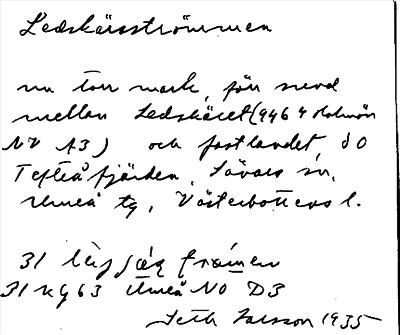 Ledskärsströmmen
nu torr mark, förr sund
mellan Ledskäret (9464 Holmön
NV A3) och fastlandet, SO
Tefteåfjärden, Sävars sn,
Umeå tg, Västerbottens l.
31
21 Kg 63 Umeå NO D3
Seth Larsson 1935